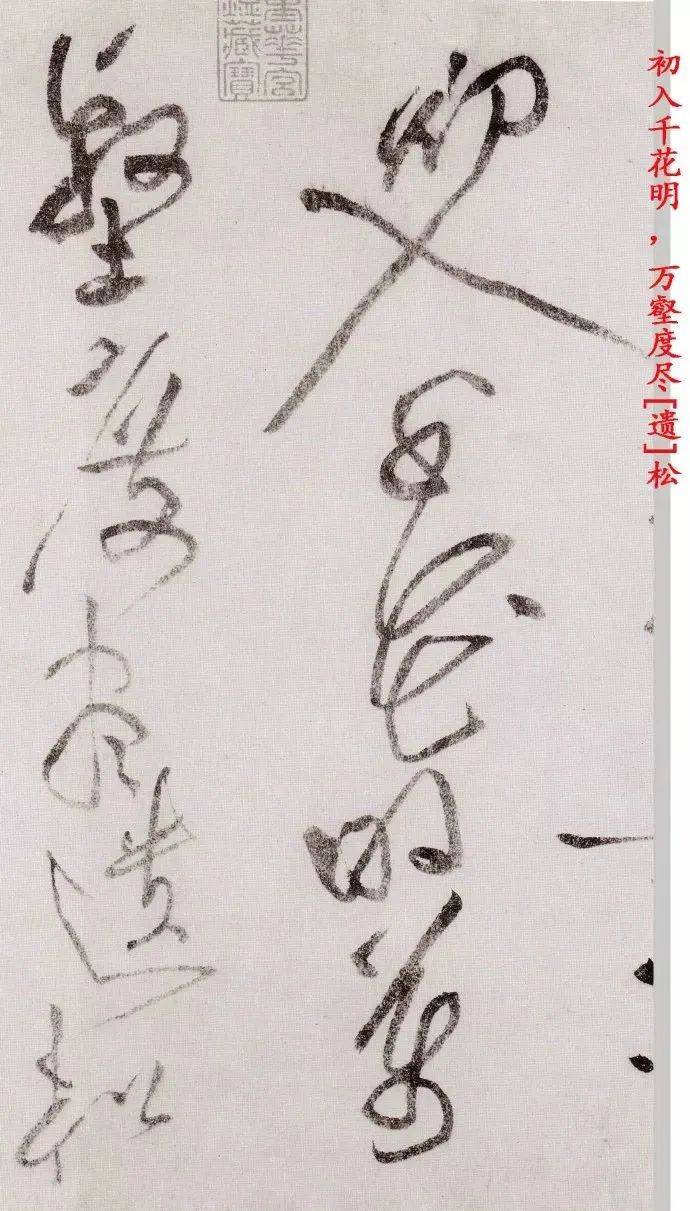 初入千花明，万壑度尽[遗]松
初入千花明萬
重華宮
鑑藏寶
壑度盡遺松